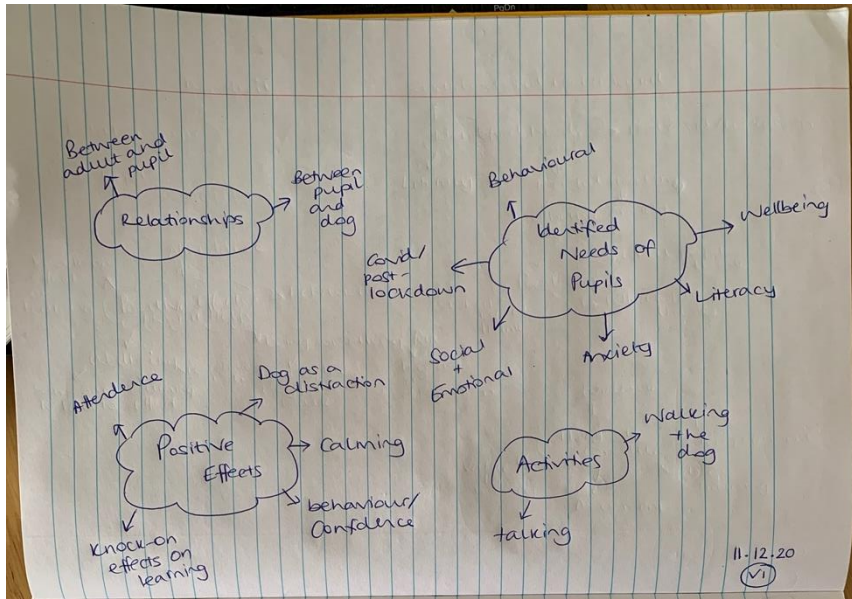 PgDn
Between
adult and
pupil
Relationships
Between
pupil
and
dog
Behavioural
Identified
Needs of
Pupils
Wellbeing
Literacy
Anxiety
Social
+
Emotional
Covid/
post-
lockdown
Attendence
Dog as a
distraction
Positive
Effects
Calming
behaviour/
Confidence
Knock-on
effects on
learning
Activities
Walking
the
dog
talking
11.12.20
V1